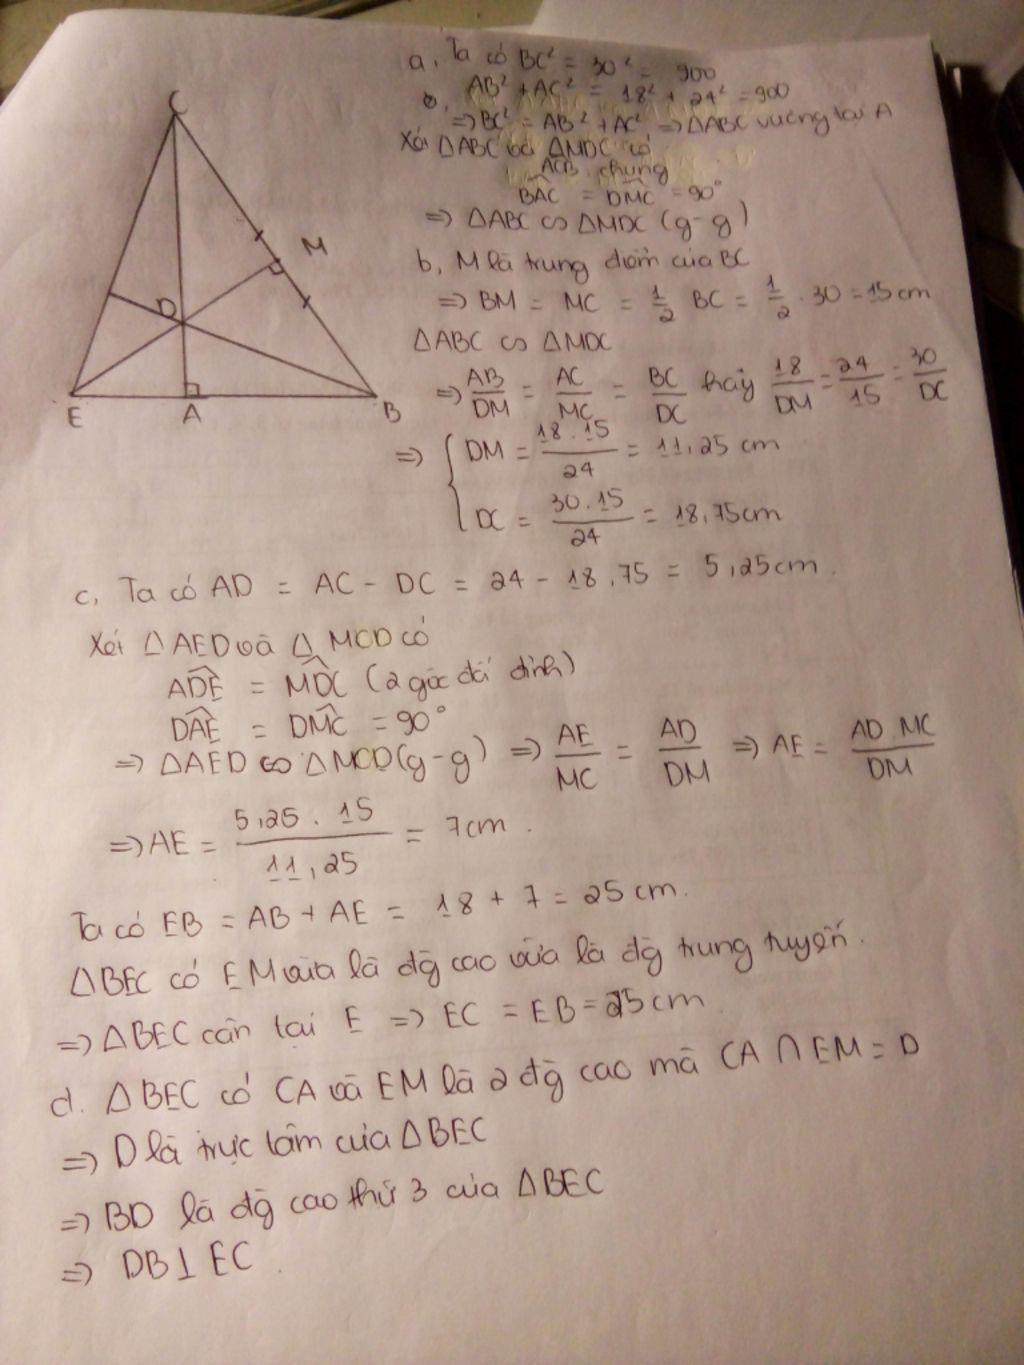 a, Ta có BC² = 30² = 900
AB² + AC² = 18² + 24² = 900
⇒ BC² = AB² + AC² ⇒ ΔABC vuông tại A
Xét ΔABC và ΔMDC có
ACB chung
BAC = DMC = 90°
⇒ ΔABC ∽ ΔMDC (g-g)
b, M là trung điểm của BC
⇒ BM = MC = 1/2 BC = 1/2 . 30 = 15 cm
ΔABC ∽ ΔMDC
⇒ AB/DM = AC/MC = BC/DC hay 18/DM = 24/15 = 30/DC
⇒ { DM = 18.15/24 = 11,25 cm
DC = 30.15/24 = 18,75cm
C
M
D
E
A
B
c, Ta có AD = AC - DC = 24 - 18,75 = 5,25cm.
Xét ΔAED và Δ MCD có
ADE = MDC (2 góc đối đỉnh)
DAE = DMC = 90°
⇒ ΔAED ∽ ΔMCD(g-g) ⇒ AE/MC = AD/DM ⇒ AE = AD.MC/DM
⇒ AE = 5,25 . 15/11,25 = 7cm.
Ta có EB = AB + AE = 18 + 7 = 25 cm.
ΔBEC có EM vừa là đg cao vừa là đg trung tuyến.
⇒ ΔBEC cân tại E ⇒ EC = EB = 25 cm
d. ΔBEC có CA và EM là 2 đg cao mà CA ∩ EM = D
⇒ D là trực tâm của ΔBEC
⇒ BD là đg cao thứ 3 của ΔBEC
⇒ DB ⊥ EC.